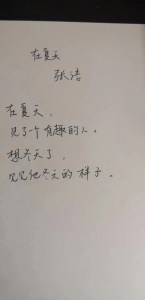 在夏天
张洁
在夏天,
见了个有趣的人。
想冬天了,
见见他冬天的样子。